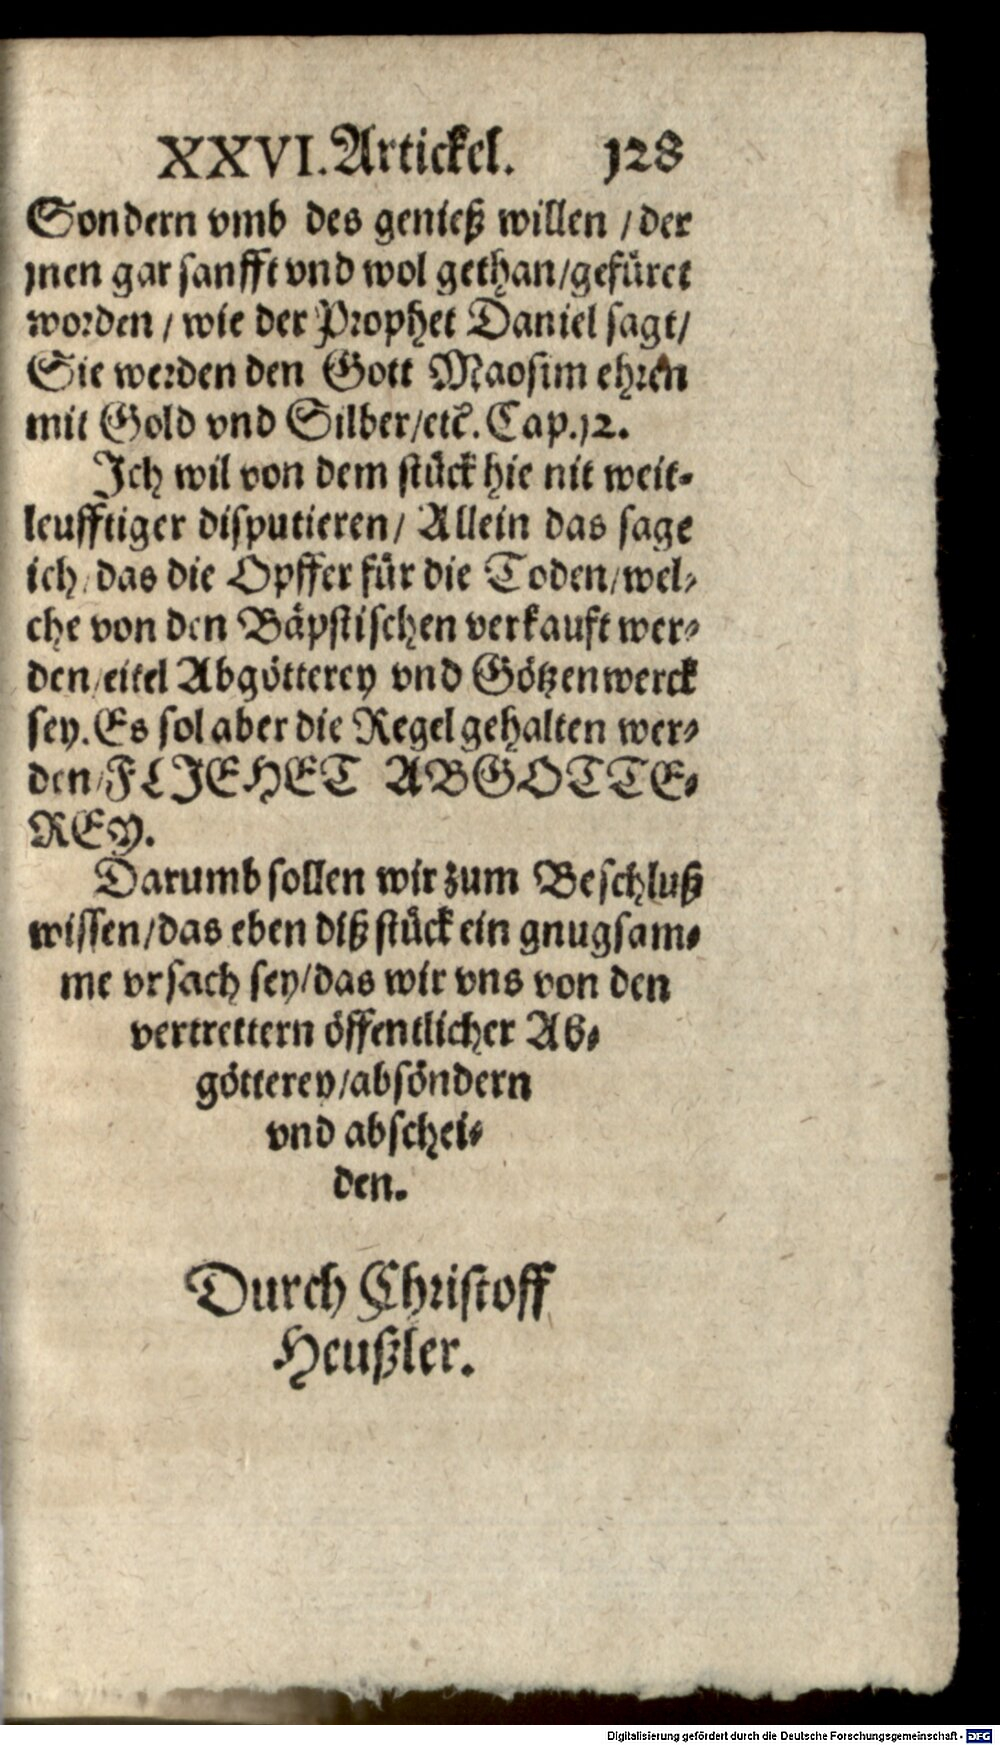 XXVI. Artickel. 128
Sondern vmb des genieß willen / der
jnen gar sanfft vnd wol gethan / gefüret
worden / wie der Prophet Daniel sagt /
Sie werden den Gott Maosim ehren
mit Gold vnd Silber / etc. Cap. 12.
Ich wil von dem stück hie nit weit-
leufftiger disputieren / Allein das sage
ich / das die Opffer für die Toden / wel-
che von den Bäpstischen verkauft wer-
den / eitel Abgötterey vnd Götzenwerck
sey. Es sol aber die Regel gehalten wer-
den / FLIEHET ABGOTTE-
REY.
Darumb sollen wir zum Beschluß
wissen / das eben diß stück ein gnugsam-
me vrsach sey / das wir vns von den
vertrettern öffentlicher Ab-
götterey / absöndern
vnd abschei-
den.
Durch Christoff
Heußler.
Digitalisierung gefördert durch die Deutsche Forschungsgemeinschaft - DFG